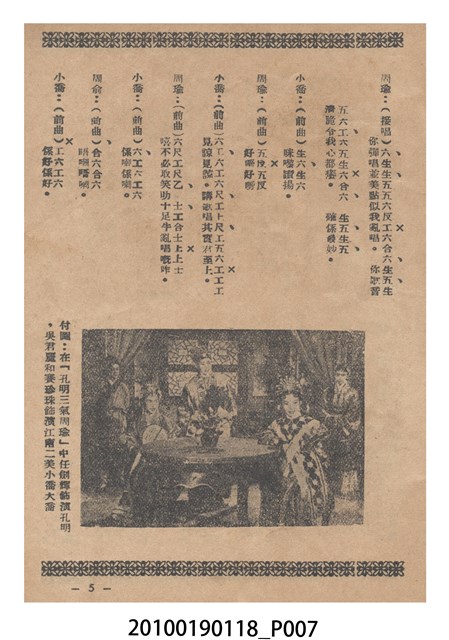 周瑜：（接唱）六生生五五六反工合六五生
你彈唱並美點似我亂唱。你歌音
五六工六五生六合六 生五生五
清脆令我心都惡。 確係最妙。
小喬：（前曲）生六生六
咪嚟讚揚。
周瑜：（前曲）五㐅五反
好啊好啊
小喬：（前曲）六工六工六尺工上尺工五六工工工
見諒見諒。講歌唱其實君至上。
周瑜：（前曲）六尺工尺乙 士工合士上上士
唔不必取笑叻十足牛亂唱嘅咋。
小喬：（前曲）六工六工六
係咁係嘞。
周俞：（前曲）合六合六
唔啱唔啱。
小喬：（前曲）工六工六
係好係好。
付圖：在「孔明三氣周瑜」中任劍輝飾演孔明
，吳君麗和麥珍珠飾演江南二美小喬大喬
— 5 —
20100190118_P007